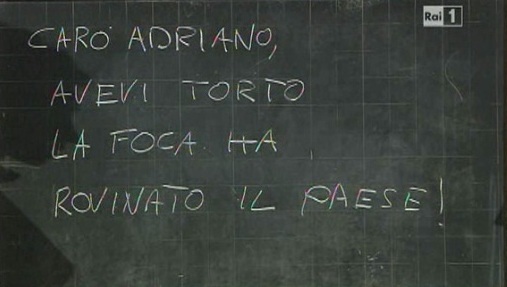 Rai 1
CARO ADRIANO,
AVEVI TORTO
LA FOCA HA
ROVINATO IL PAESE!